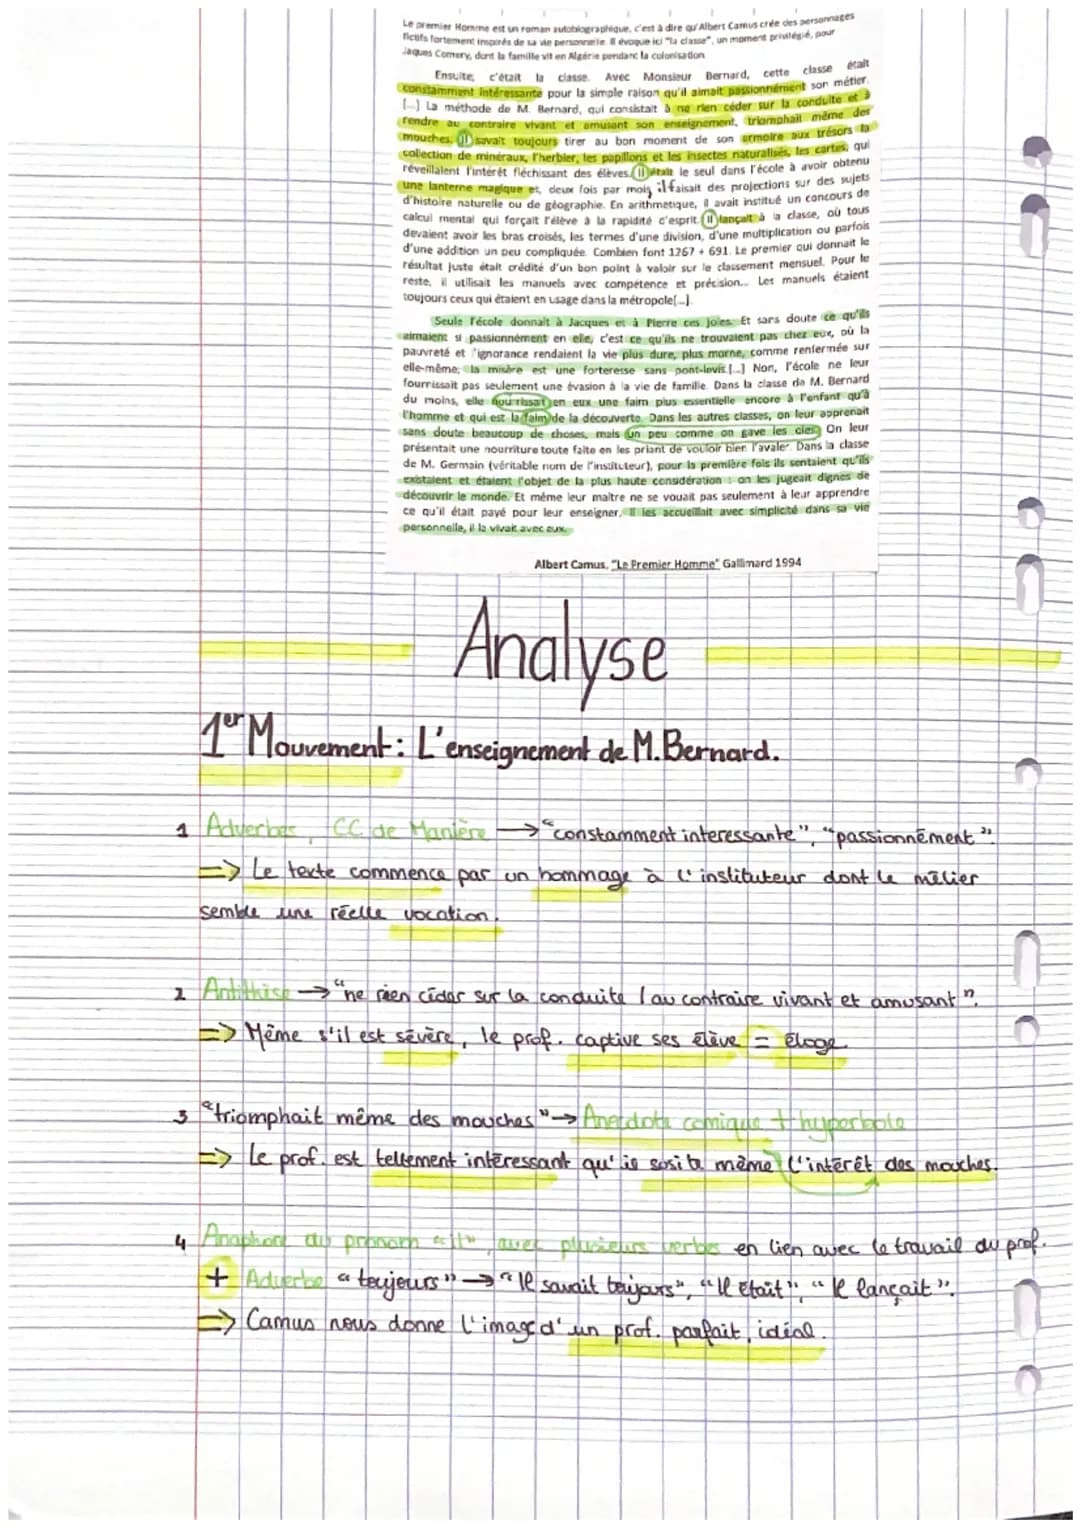 Le premier Homme est un roman autobiographique, c'est à dire qu'Albert Camus crée des personnages
fictifs fortement inspirés de sa vie personnelle. Il évoque ici "la classe", un moment privilégié, pour
Jaques Comery, dont la famille vit en Algérie pendant la colonisation
Ensuite, c'était la classe. Avec Monsieur Bernard, cette classe était
constamment intéressante pour la simple raison qu'il aimait passionnément son métier.
[...] La méthode de M. Bernard, qui consistait à ne rien céder sur la conduite et à
rendre au contraire vivant et amusant son enseignement, triomphait même des
mouches. Il savait toujours tirer au bon moment de son armoire aux trésors la
collection de minéraux, l'herbier, les papillons et les insectes naturalisés, les cartes, qui
réveillaient l'intérêt fléchissant des élèves. Il était le seul dans l'école à avoir obtenu
une lanterne magique et, deux fois par mois, il faisait des projections sur des sujets
d'histoire naturelle ou de géographie. En arithmétique, il avait institué un concours de
calcul mental qui forçait l'élève à la rapidité d'esprit. Il lançait à la classe, où tous
devaient avoir les bras croisés, les termes d'une division, d'une multiplication ou parfois
d'une addition un peu compliquée. Combien font 1267 + 691. Le premier qui donnait le
résultat juste était crédité d'un bon point à valoir sur le classement mensuel. Pour le
reste, il utilisait les manuels avec compétence et précision... Les manuels étaient
toujours ceux qui étaient en usage dans la métropole[...].
Seule l'école donnait à Jacques et à Pierre ces joies. Et sans doute ce qu'ils
aimaient si passionnément en elle, c'est ce qu'ils ne trouvaient pas chez eux, où la
pauvreté et l'ignorance rendaient la vie plus dure, plus morne, comme renfermée sur
elle-même; la misère est une forteresse sans pont-levis.[...] Non, l'école ne leur
fournissait pas seulement une évasion à la vie de famille. Dans la classe de M. Bernard
du moins, elle nourrissait en eux une faim plus essentielle encore à l'enfant qu'à
l'homme et qui est la faim de la découverte. Dans les autres classes, on leur apprenait
sans doute beaucoup de choses, mais un peu comme on gave les oies. On leur
présentait une nourriture toute faite en les priant de vouloir bien l'avaler. Dans la classe
de M. Germain (véritable nom de l'instituteur), pour la première fois ils sentaient qu'ils
existaient et étaient l'objet de la plus haute considération : on les jugeait dignes de
découvrir le monde. Et même leur maître ne se vouait pas seulement à leur apprendre
ce qu'il était payé pour leur enseigner, il les accueillait avec simplicité dans sa vie
personnelle, il la vivait avec eux.
Albert Camus, "Le Premier Homme" Gallimard 1994
Analyse
1er Mouvement : L'enseignement de M. Bernard.
1 Adverbes, CC de Manière → "constamment interessante", "passionnément".
=> Le texte commence par un hommage à l'instituteur dont le métier
semble une réelle vocation.
2 Antithèse → "ne rien céder sur la conduite / au contraire vivant et amusant".
=> Même s'il est sévère, le prof. captive ses élève = éloge.
3 "triomphait même des mouches" → Anecdote comique + hyperbole
=> Le prof. est tellement intéressant qu'il sucita même l'intérêt des mouches.
4 Anaphore du pronom "il", avec plusieurs verbes en lien avec le travail du prof.
+ Adverbe "toujours" → "Il savait toujours", "Il était", "Il lançait".
=> Camus nous donne l'image d'un prof. parfait, idéal.